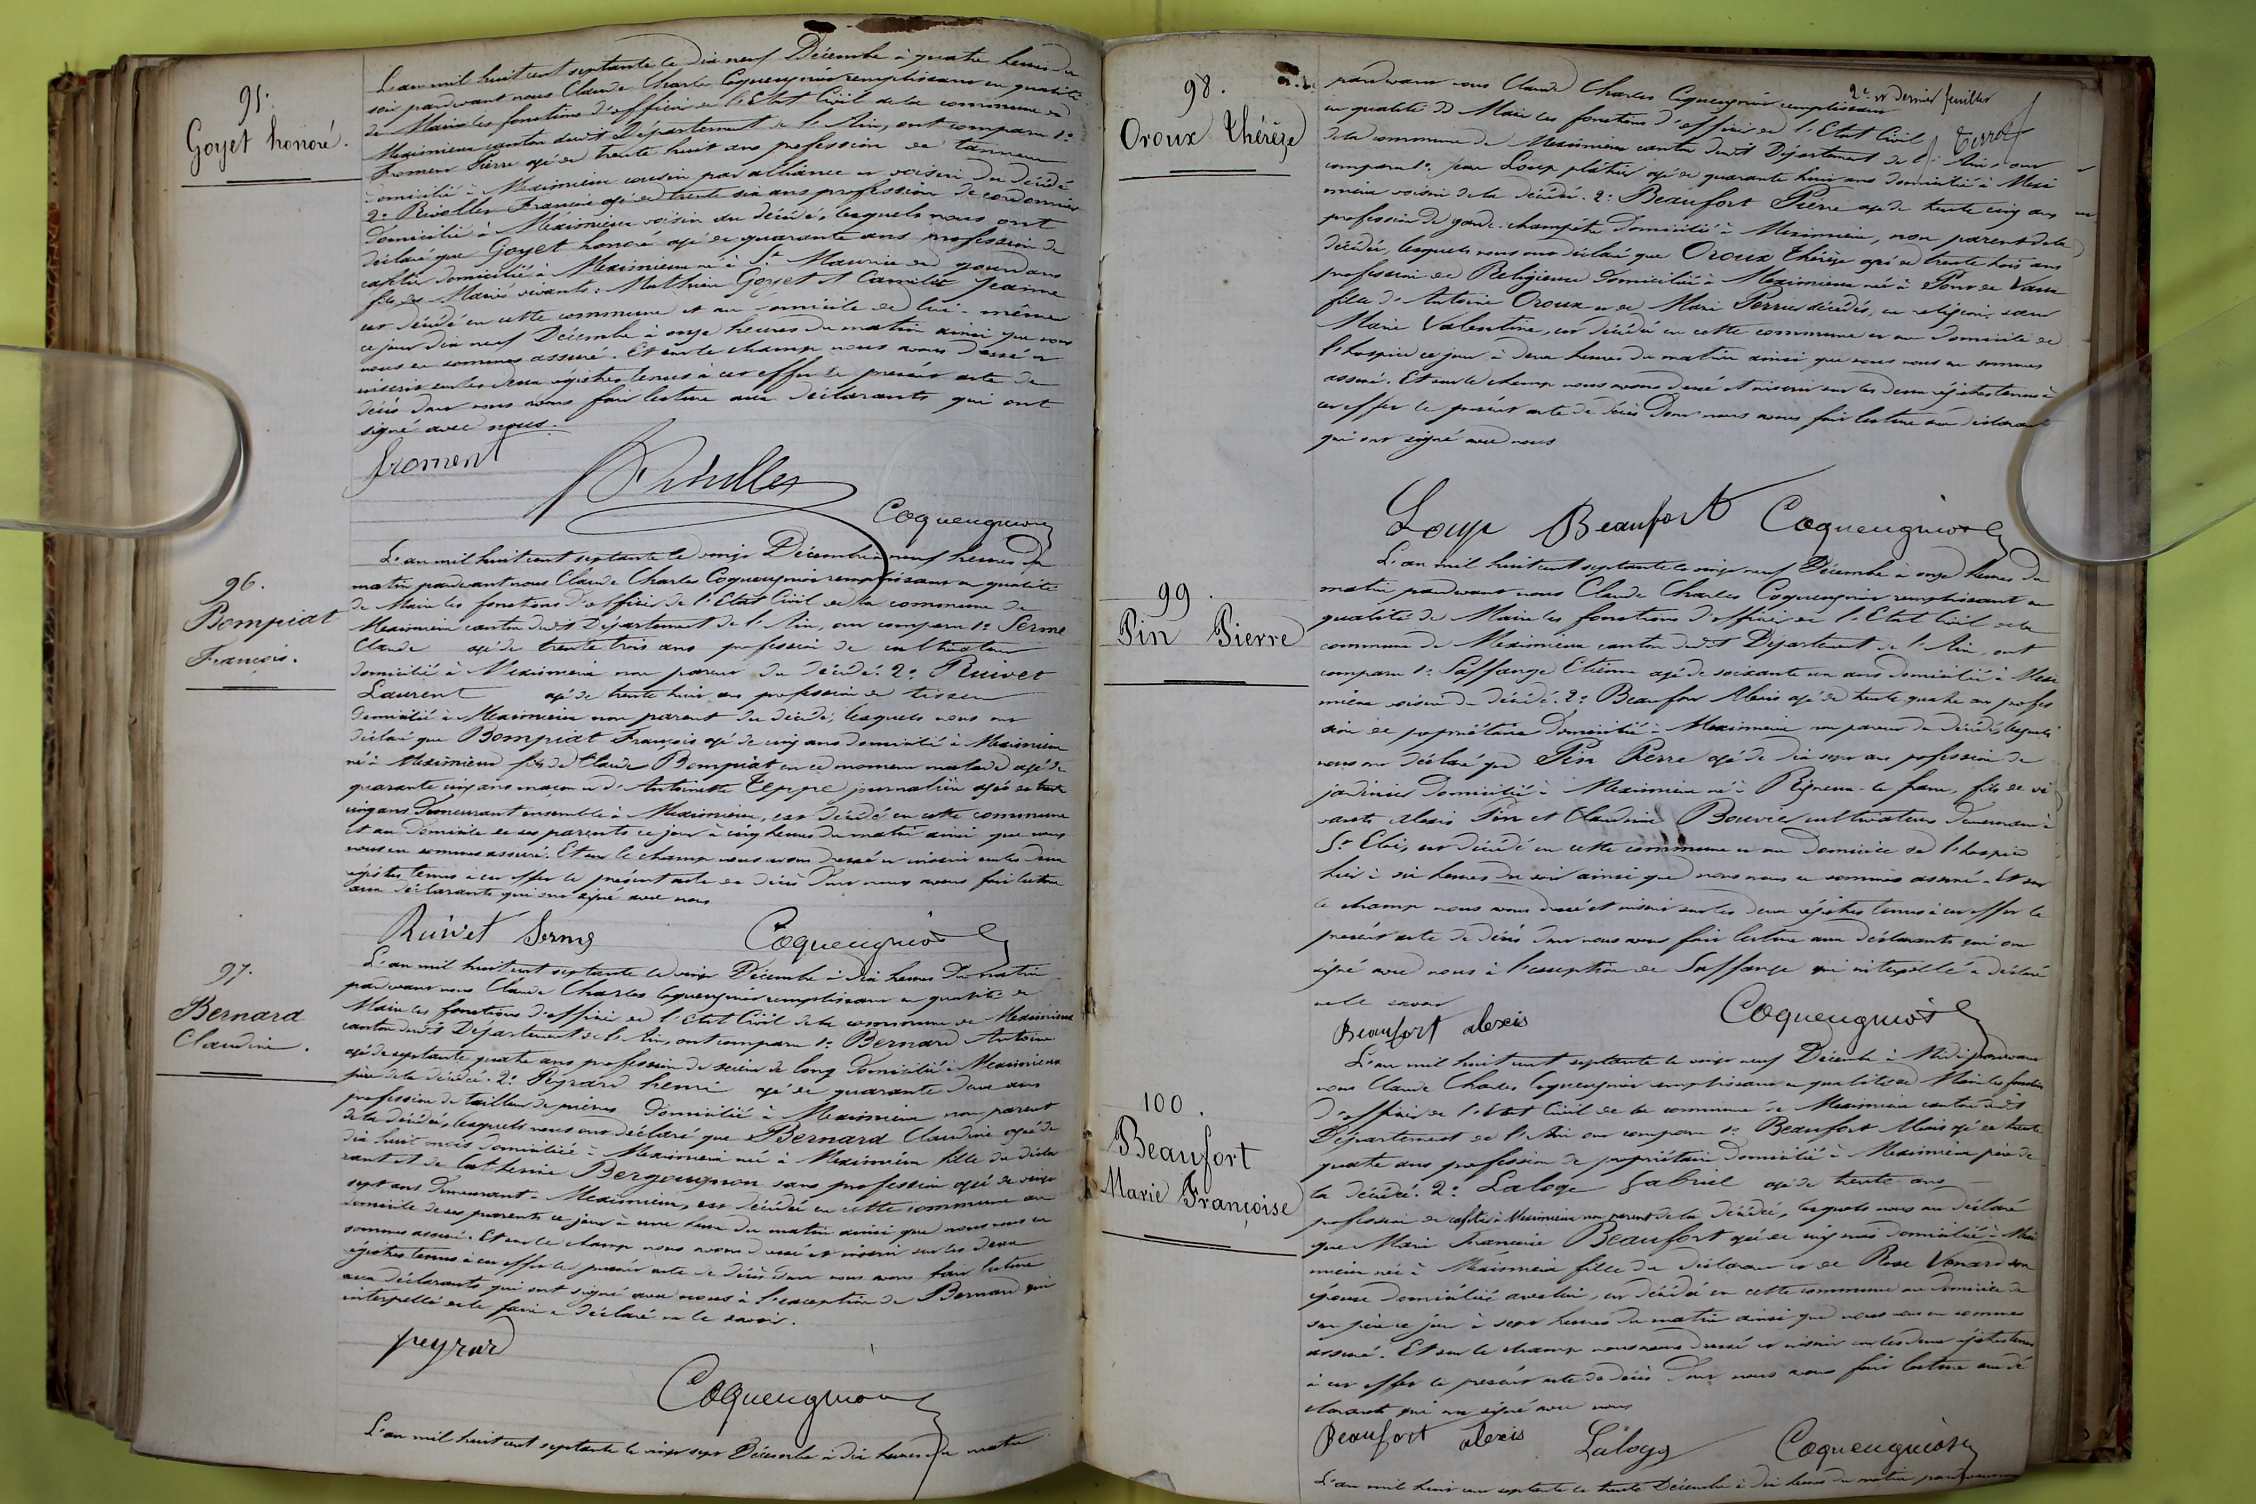 95.
Goyet honoré.
L'an mil huit cent septante le dix neuf Décembre à quatre heures du
soir pardevant nous Claude Charles Coquengniot remplissant en qualité
de Maire les fonctions d'officier de l'Etat Civil de la commune de
Meximieux canton dudit Département de l'Ain, ont comparu 1º
Froment Pierre agé de trente huit ans profession de tanneur
domicilié à Meximieux cousin par alliance et voisin du décédé
2º Rivoller François agé de trente six ans profession de cordonnier
domicilié à Meximieux voisin du décédé, lesquels nous ont
déclaré que Goyet honoré agé de quarante ans profession de
cafetier domicilié à Meximieux né à St Maurice de gourdans
fils de Mariés vivants: Mathieu Goyet et Camelit Jeanne
est décédé en cette commune et au domicile de lui-même
ce jour dix neuf Décembre à onze heures du matin ainsi que nous
nous en sommes assuré. Et sur le champ nous avons dressé et
inscrit sur les deux régistres tenus à cet effet le présent acte de
décès dont nous avons fait lecture aux déclarants qui ont
signé avec nous.
froment
Rivoller
Coquengniot
96.
Bompiat
François.
L'an mil huit cent septante le vingt Décembre à neuf heures du
matin pardevant nous Claude Charles Coquengniot remplissant en qualité
de Maire les fonctions d'officier de l'Etat Civil de la commune de
Meximieux canton dudit Département de l'Ain, ont comparu 1º Serme
Claude agé de trente trois ans profession de cultivateur
domicilié à Meximieux non parent du décédé. 2º Ruivet
Laurent agé de trente huit ans profession de tisseur
domicilié à Meximieux non parent du décédé, lesquels nous ont
déclaré que Bompiat François agé de cinq ans domicilié à Meximieux
né à Meximieux fils de Claude Bompiat en ce moment malade agé de
quarante cinq ans maçon et d'Antoinette Teppe journalière agée de trente
cinq ans demeurant ensemble à Meximieux, est décédé en cette commune
et au domicile de ses parents ce jour à cinq heures du matin ainsi que nous
nous en sommes assuré. Et sur le champ nous avons dressé et inscrit sur les deux
régistres tenus à cet effet le présent acte de décès dont nous avons fait lecture
aux déclarants qui ont signé avec nous
Ruivet Serme Coquengniot
97.
Bernard
Claudine.
L'an mil huit cent septante le vingt Décembre à dix heures du matin
pardevant nous Claude Charles Coquengniot remplissant en qualité de
Maire les fonctions d'officier de l'Etat Civil de la commune de Meximieux
canton dudit Département de l'Ain, ont comparu 1º Bernard Antoine
agé de septante quatre ans profession de scieur de long domicilié à Meximieux
père de la décédée. 2º Peyrard henri agé de quarante deux ans
profession de tailleur de pierres domicilié à Meximieux non parent
de la décédée, lesquels nous ont déclaré que Bernard Claudine agée de
dix huit mois domiciliée à Meximieux née à Meximieux fille du décla
rant et de Catherine Bergougnon sans profession agée de vingt
sept ans demeurant à Meximieux, est décédée en cette commune au
domicile de ses parents ce jour à une heure du matin ainsi que nous nous en
sommes assuré. Et sur le champ nous avons dressé et inscrit sur les deux
régistres tenus à cet effet le présent acte de décès dont nous avons fait lecture
aux déclarants qui ont signé avec nous à l'exception de Bernard qui
interpellé de le faire a déclaré ne le savoir.
peyrard
Coquengniot
L'an mil huit cent septante le vingt sept Décembre à dix heures du matin
2e et dernier feuillet
98.
Oroux Thérèze
pardevant nous Claude Charles Coquengniot remplissant
en qualité de Maire les fonctions d'officier de l'Etat Civil
de la commune de Meximieux canton dudit Département de l'Ain, ont
comparu 1º Jean Loup plâtrier agé de quarante huit ans domicilié à Mexi
mieux voisin de la décédée. 2º Beaufort Pierre agé de trente cinq ans
profession de garde-champêtre domicilié à Meximieux, non parent de la
décédée, lesquels nous ont déclaré que Oroux Thérèze agée de trente trois ans
profession de Religieuse domiciliée à Meximieux née à Pont de Vaux
fille d'Antoine Oroux et de Marie Perrier décédés, en religion, sœur
Marie Valentine, est décédée en cette commune et au domicile de
l'hospice ce jour à deux heures du matin ainsi que nous nous en sommes
assuré. Et sur le champ nous avons dressé et inscrit sur les deux régistres tenus à
cet effet le présent acte de décès dont nous avons fait lecture aux déclarants
qui ont signé avec nous
Loup Beaufort Coquengniot
99.
Pin Pierre
L'an mil huit cent septante le vingt neuf Décembre à onze heures du
matin pardevant nous Claude Charles Coquengniot remplissant en
qualité de Maire les fonctions d'officier de l'Etat Civil de la
commune de Meximieux canton dudit Département de l'Ain, ont
comparu 1º Saffange Etienne agé de soixante un ans domicilié à Mexi
mieux voisin du décédé. 2º Beaufort Alexis agé de trente quatre ans profes
sion de propriétaire domicilié à Meximieux non parent du décédé, lesquels
nous ont déclaré que Pin Pierre agé de dix sept ans profession de
jardinier domicilié à Meximieux né à Rigneux-le franc, fils de vi
vants Alexis Pin et Claudine Bouvier cultivateurs demeurant à
St Eloi, est décédé en cette commune et au domicile de l'hospice
hier à six heures du soir ainsi que nous nous en sommes assuré. Et sur
le champ nous avons dressé et inscrit sur les deux régistres tenus à cet effet le
présent acte de décès dont nous avons fait lecture aux déclarants qui ont
signé avec nous à l'exception de Saffange qui interpellé a déclaré
ne le savoir
Beaufort alexis Coquengniot
100.
Beaufort
Marie Françoise
L'an mil huit cent septante le vingt neuf Décembre à Midi pardevant
nous Claude Charles Coquengniot remplissant en qualité de Maire les fonctions
d'officier de l'Etat Civil de la commune de Meximieux canton dudit
Département de l'Ain ont comparu 1º Beaufort Alexis agé de trente
quatre ans profession de propriétaire domicilié à Meximieux père de
la décédée. 2º Laloge Gabriel agé de trente ans
profession de cafetier à Meximieux non parent de la décédée, lesquels nous ont déclaré
que Marie Françoise Beaufort agée de cinq mois domiciliée à Mexi
mieux née à Meximieux fille du déclarant et de Rose Venard son
épouse domiciliée avec lui, est décédée en cette commune au domicile de
son père ce jour à sept heures du matin ainsi que nous nous en sommes
assuré. Et sur le champ nous avons dressé et inscrit sur les deux régistres tenus
à cet effet le présent acte de décès dont nous avons fait lecture aux dé
clarants qui ont signé avec nous
Beaufort alexis Laloge Coquengniot
L'an mil huit cent septante le trente Décembre à dix heures du matin pardevant